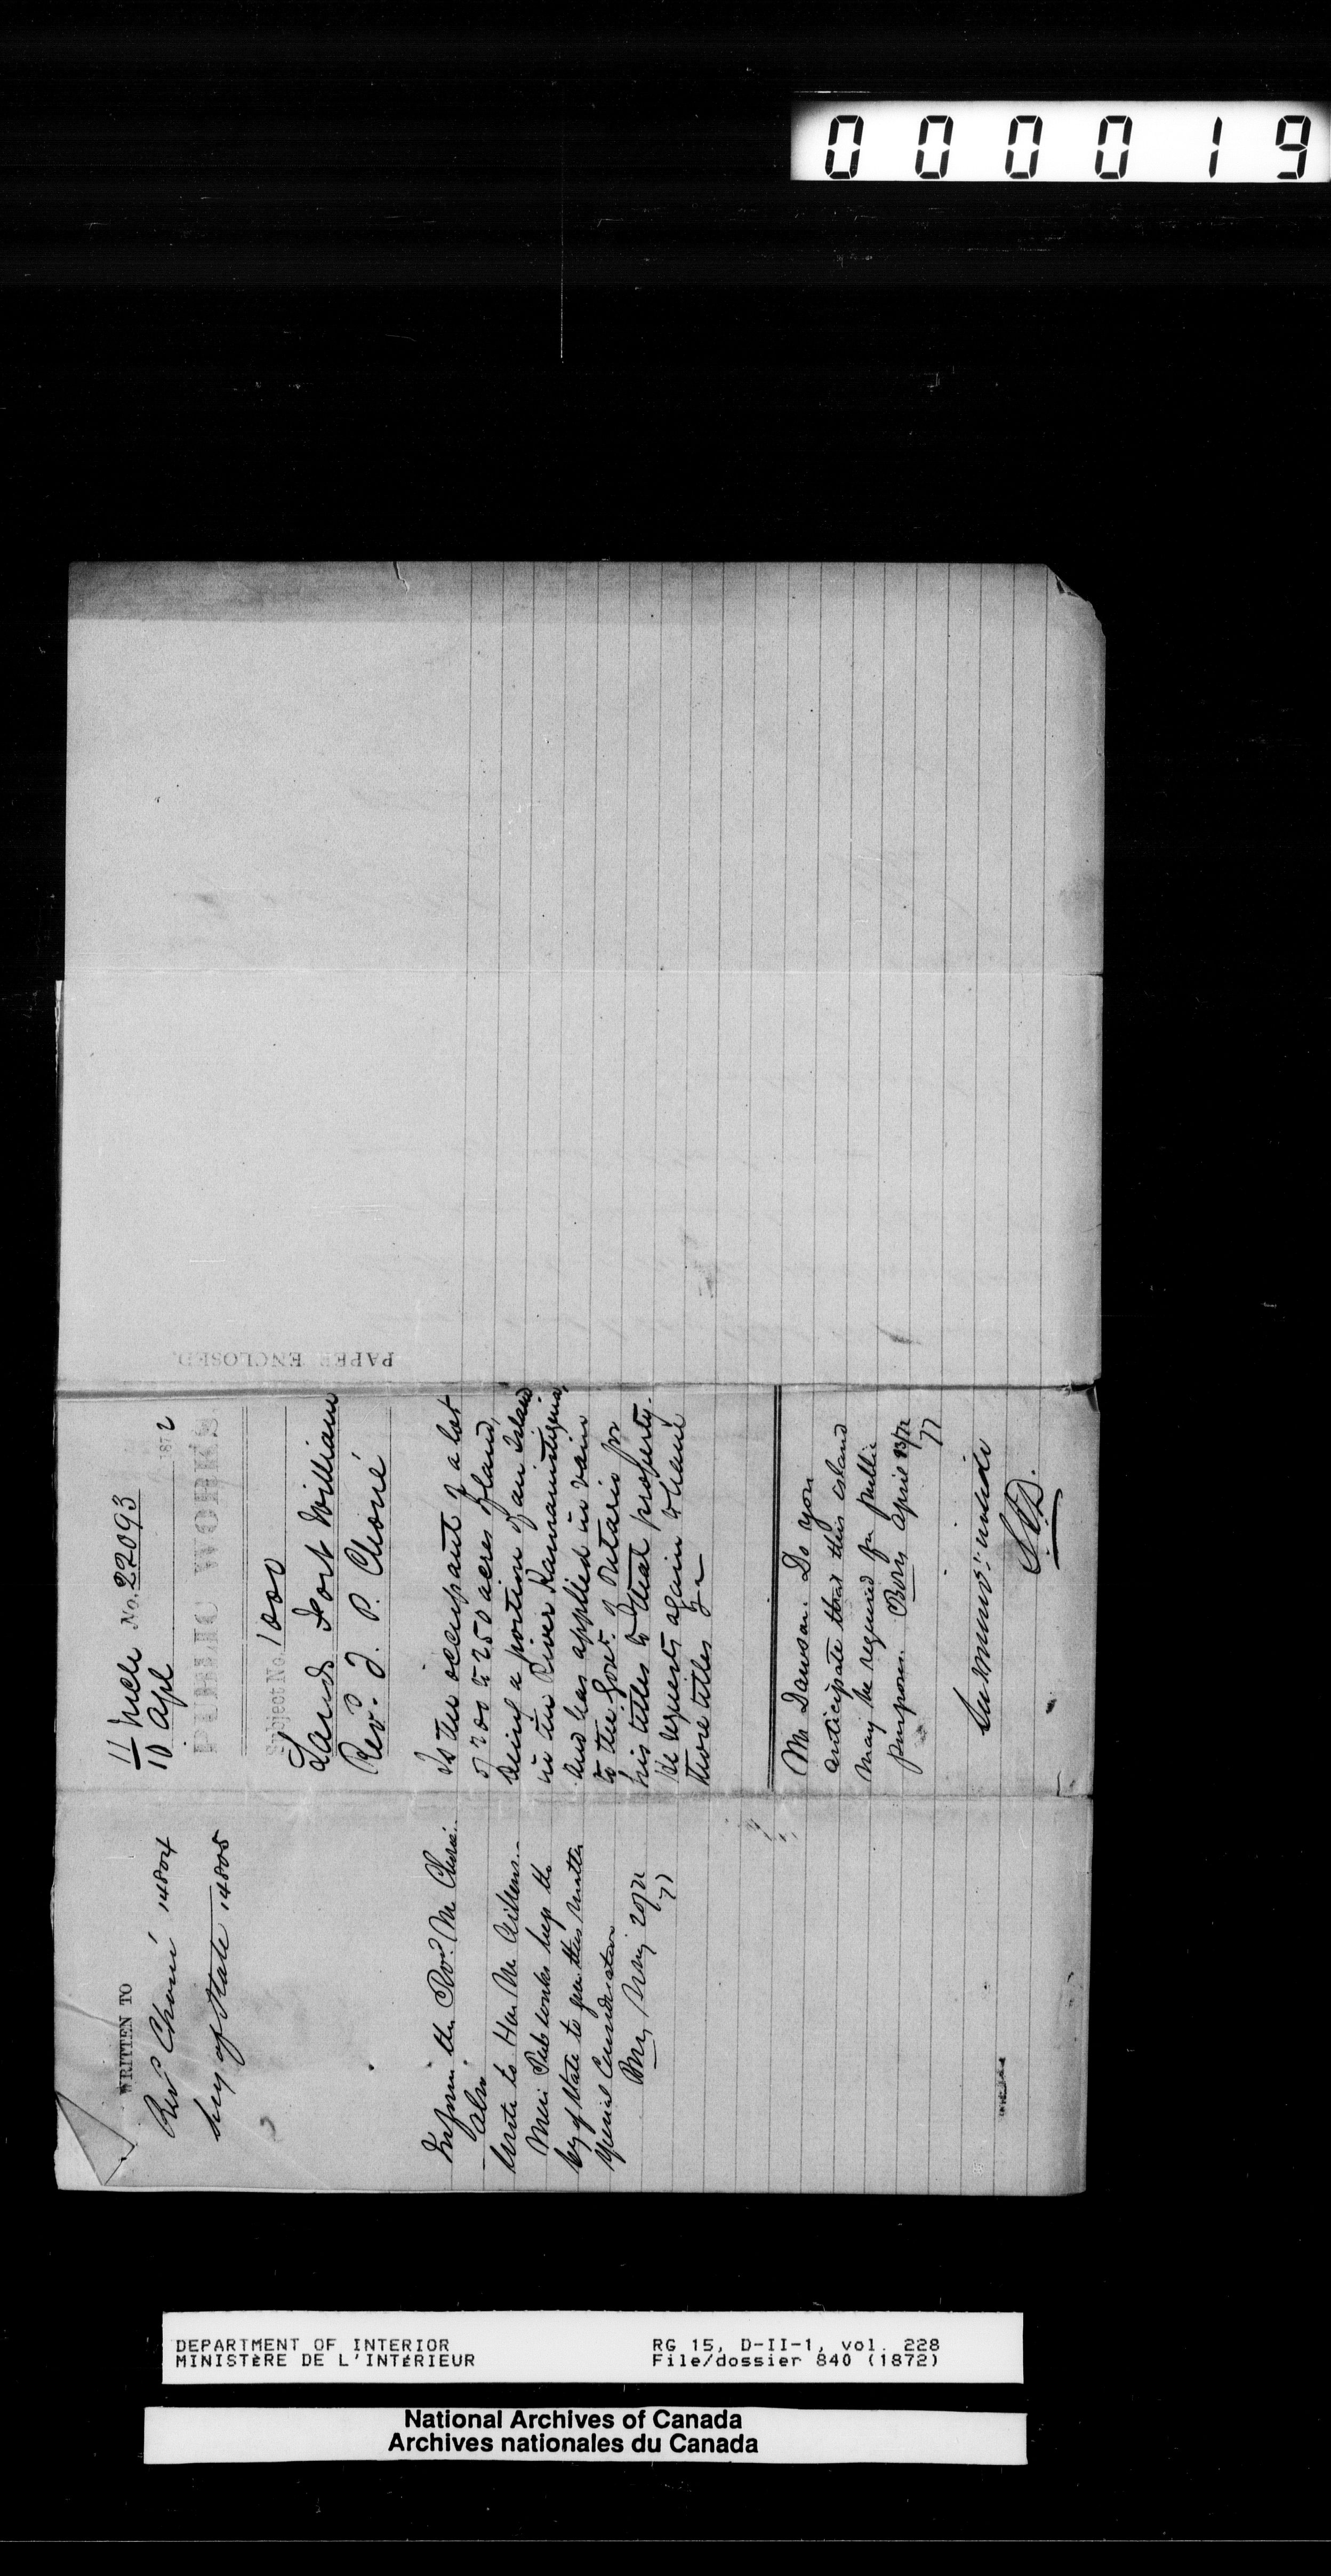 000019
WRITTEN TO
Revd Choné 14804
Secy of State 14805
Inform the Revd Mr Choné.
also
Write to Hon Mr Aikens.
Min Pub Works begs the
Secy of State to give this matter
special Consideration
20/72
11 Mch No. 22093
10 Apl 1872
PUBLIC WORKS
Subject No. 1000
Lands Fort William
Revd. J. P. Choné
Is the occupant of a lot
of 200 to 250 acres of land,
being a portion of an Island
in the River Kamanistiquia,
and has applied in vain
to the Govt. of Ontario for
his titles to that property.
He requests again to have
those titles
Mr Dawson. Do you
anticipate that this island
may be required for public
purposes. April 13/72
Answered: inside
S.J.D.
PAPER ENCLOSED.
DEPARTMENT OF INTERIOR
MINISTÈRE DE L'INTÉRIEUR
RG 15, D-II-1, vol. 228
File/dossier 840 (1872)
National Archives of Canada
Archives nationales du Canada